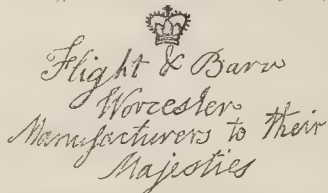 Flight & Barr
Worcester
Manufacturers to their
Majesties